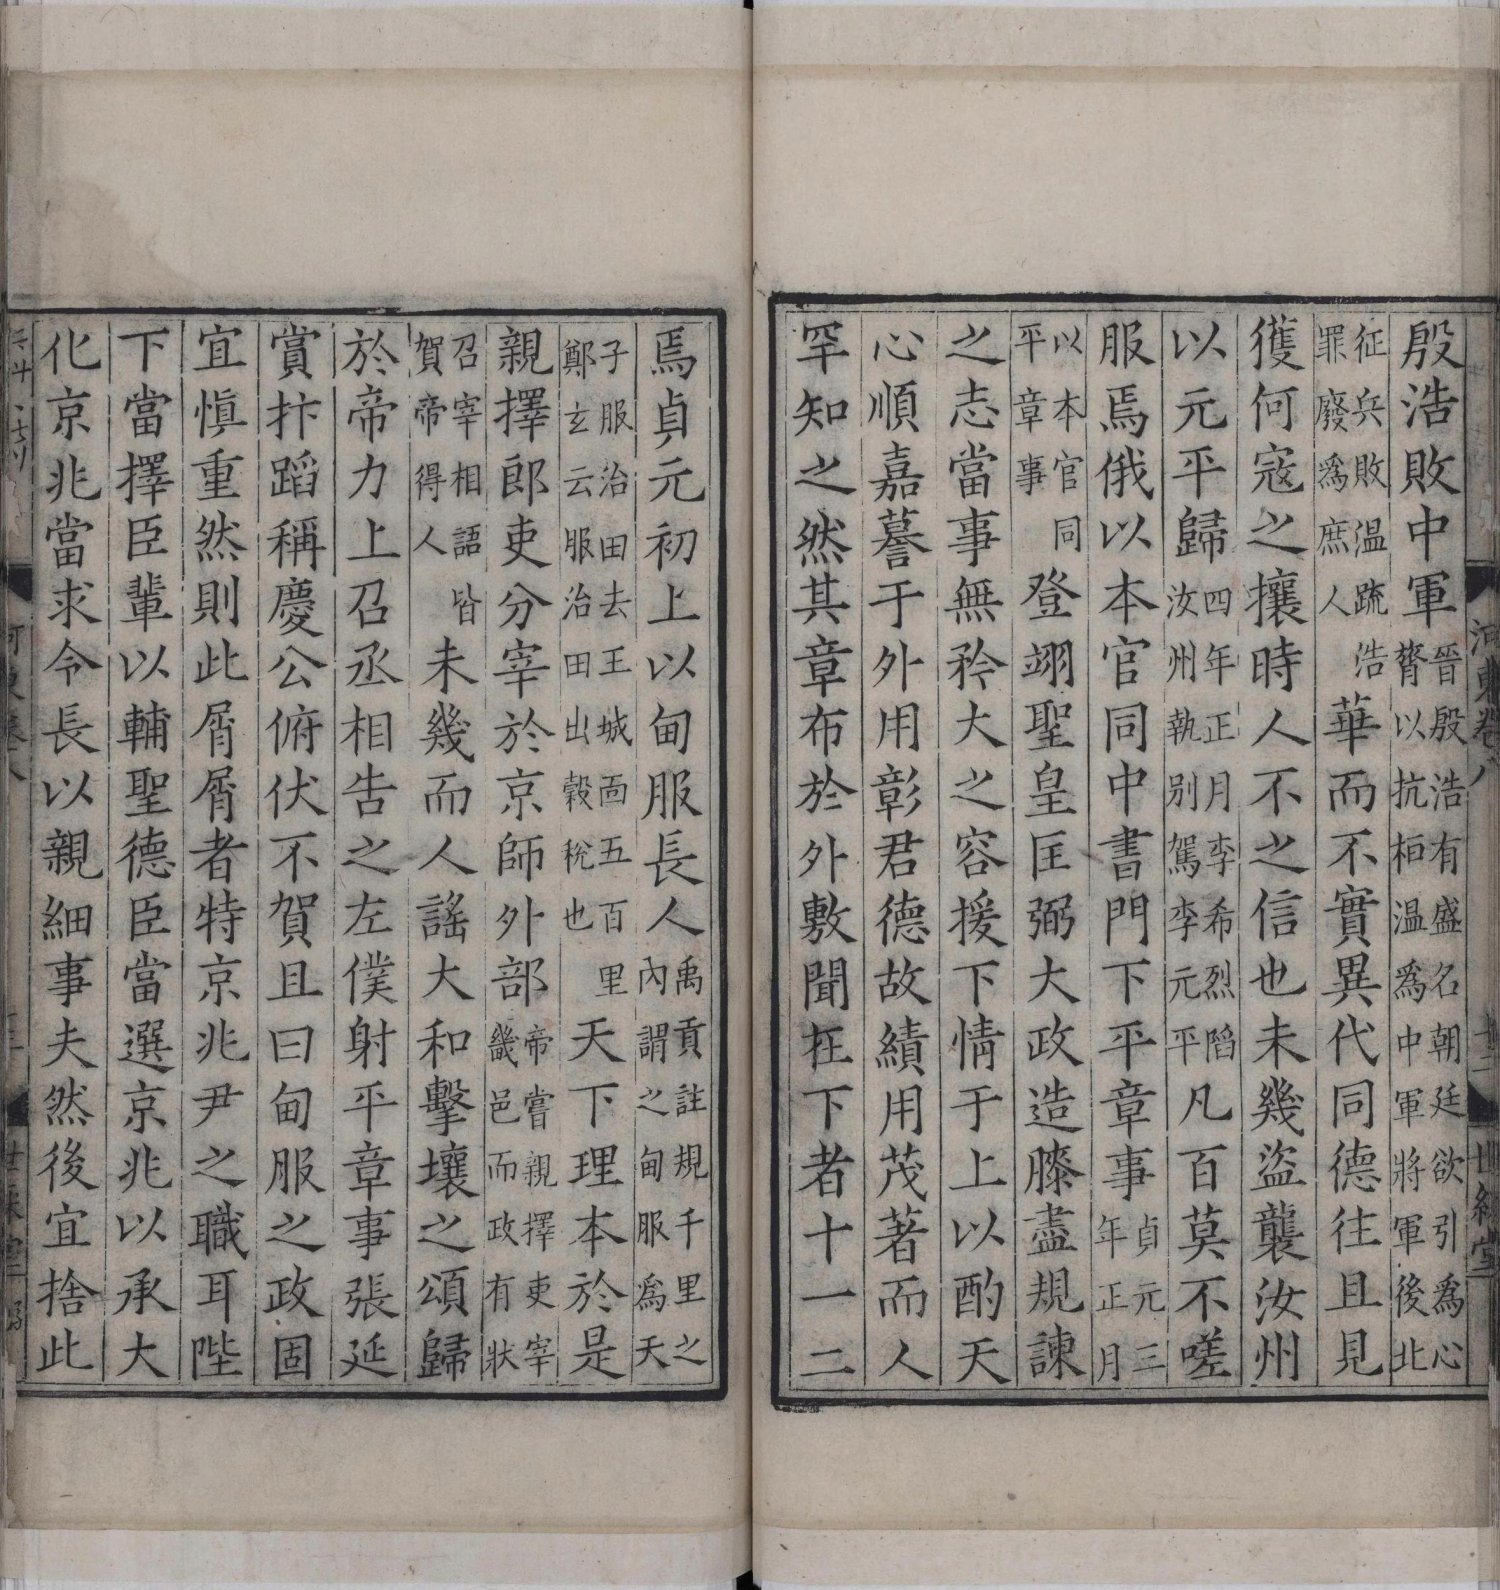 殷浩敗中軍晉殷浩有盛名朝廷欲引爲心膂以抗桓温爲中軍將軍後北
征兵敗温䟽浩罪廢爲庶人華而不實異代同德往且見
獲何寇之攘時人不之信也未幾盜襲汝州
以元平歸四年正月李希烈䧟汝州執别駕李元平凡百莫不嗟
服焉俄以本官同中書門下平章事貞元三年正月
以本官同平章事登翊聖皇匡弼大政造膝盡規諫
之志當事無矜大之容援下情于上以酌天
心順嘉謩于外用彰君德故績用茂著而人
罕知之然其章布於外敷聞在下者十一二
焉貞元初上以甸服長人禹貢註規千里之内謂之甸服爲天
子服治田去王城面五百里鄭玄云服治田出穀稅也天下理本於是
親擇郎吏分宰於京師外部帝嘗親擇吏宰畿邑而政有狀
召宰相語皆賀帝得人未幾而人謠大和擊壤之頌歸
於帝力上召丞相告之左僕射平章事張延
賞抃蹈稱慶公俯伏不賀且曰甸服之政固
宜愼重然則此屑屑者特京兆尹之職耳陛
下當擇臣輩以輔聖德臣當選京兆以承大
化京兆當求令長以親細事夫然後宜捨此
河東卷八
十二
世綵堂